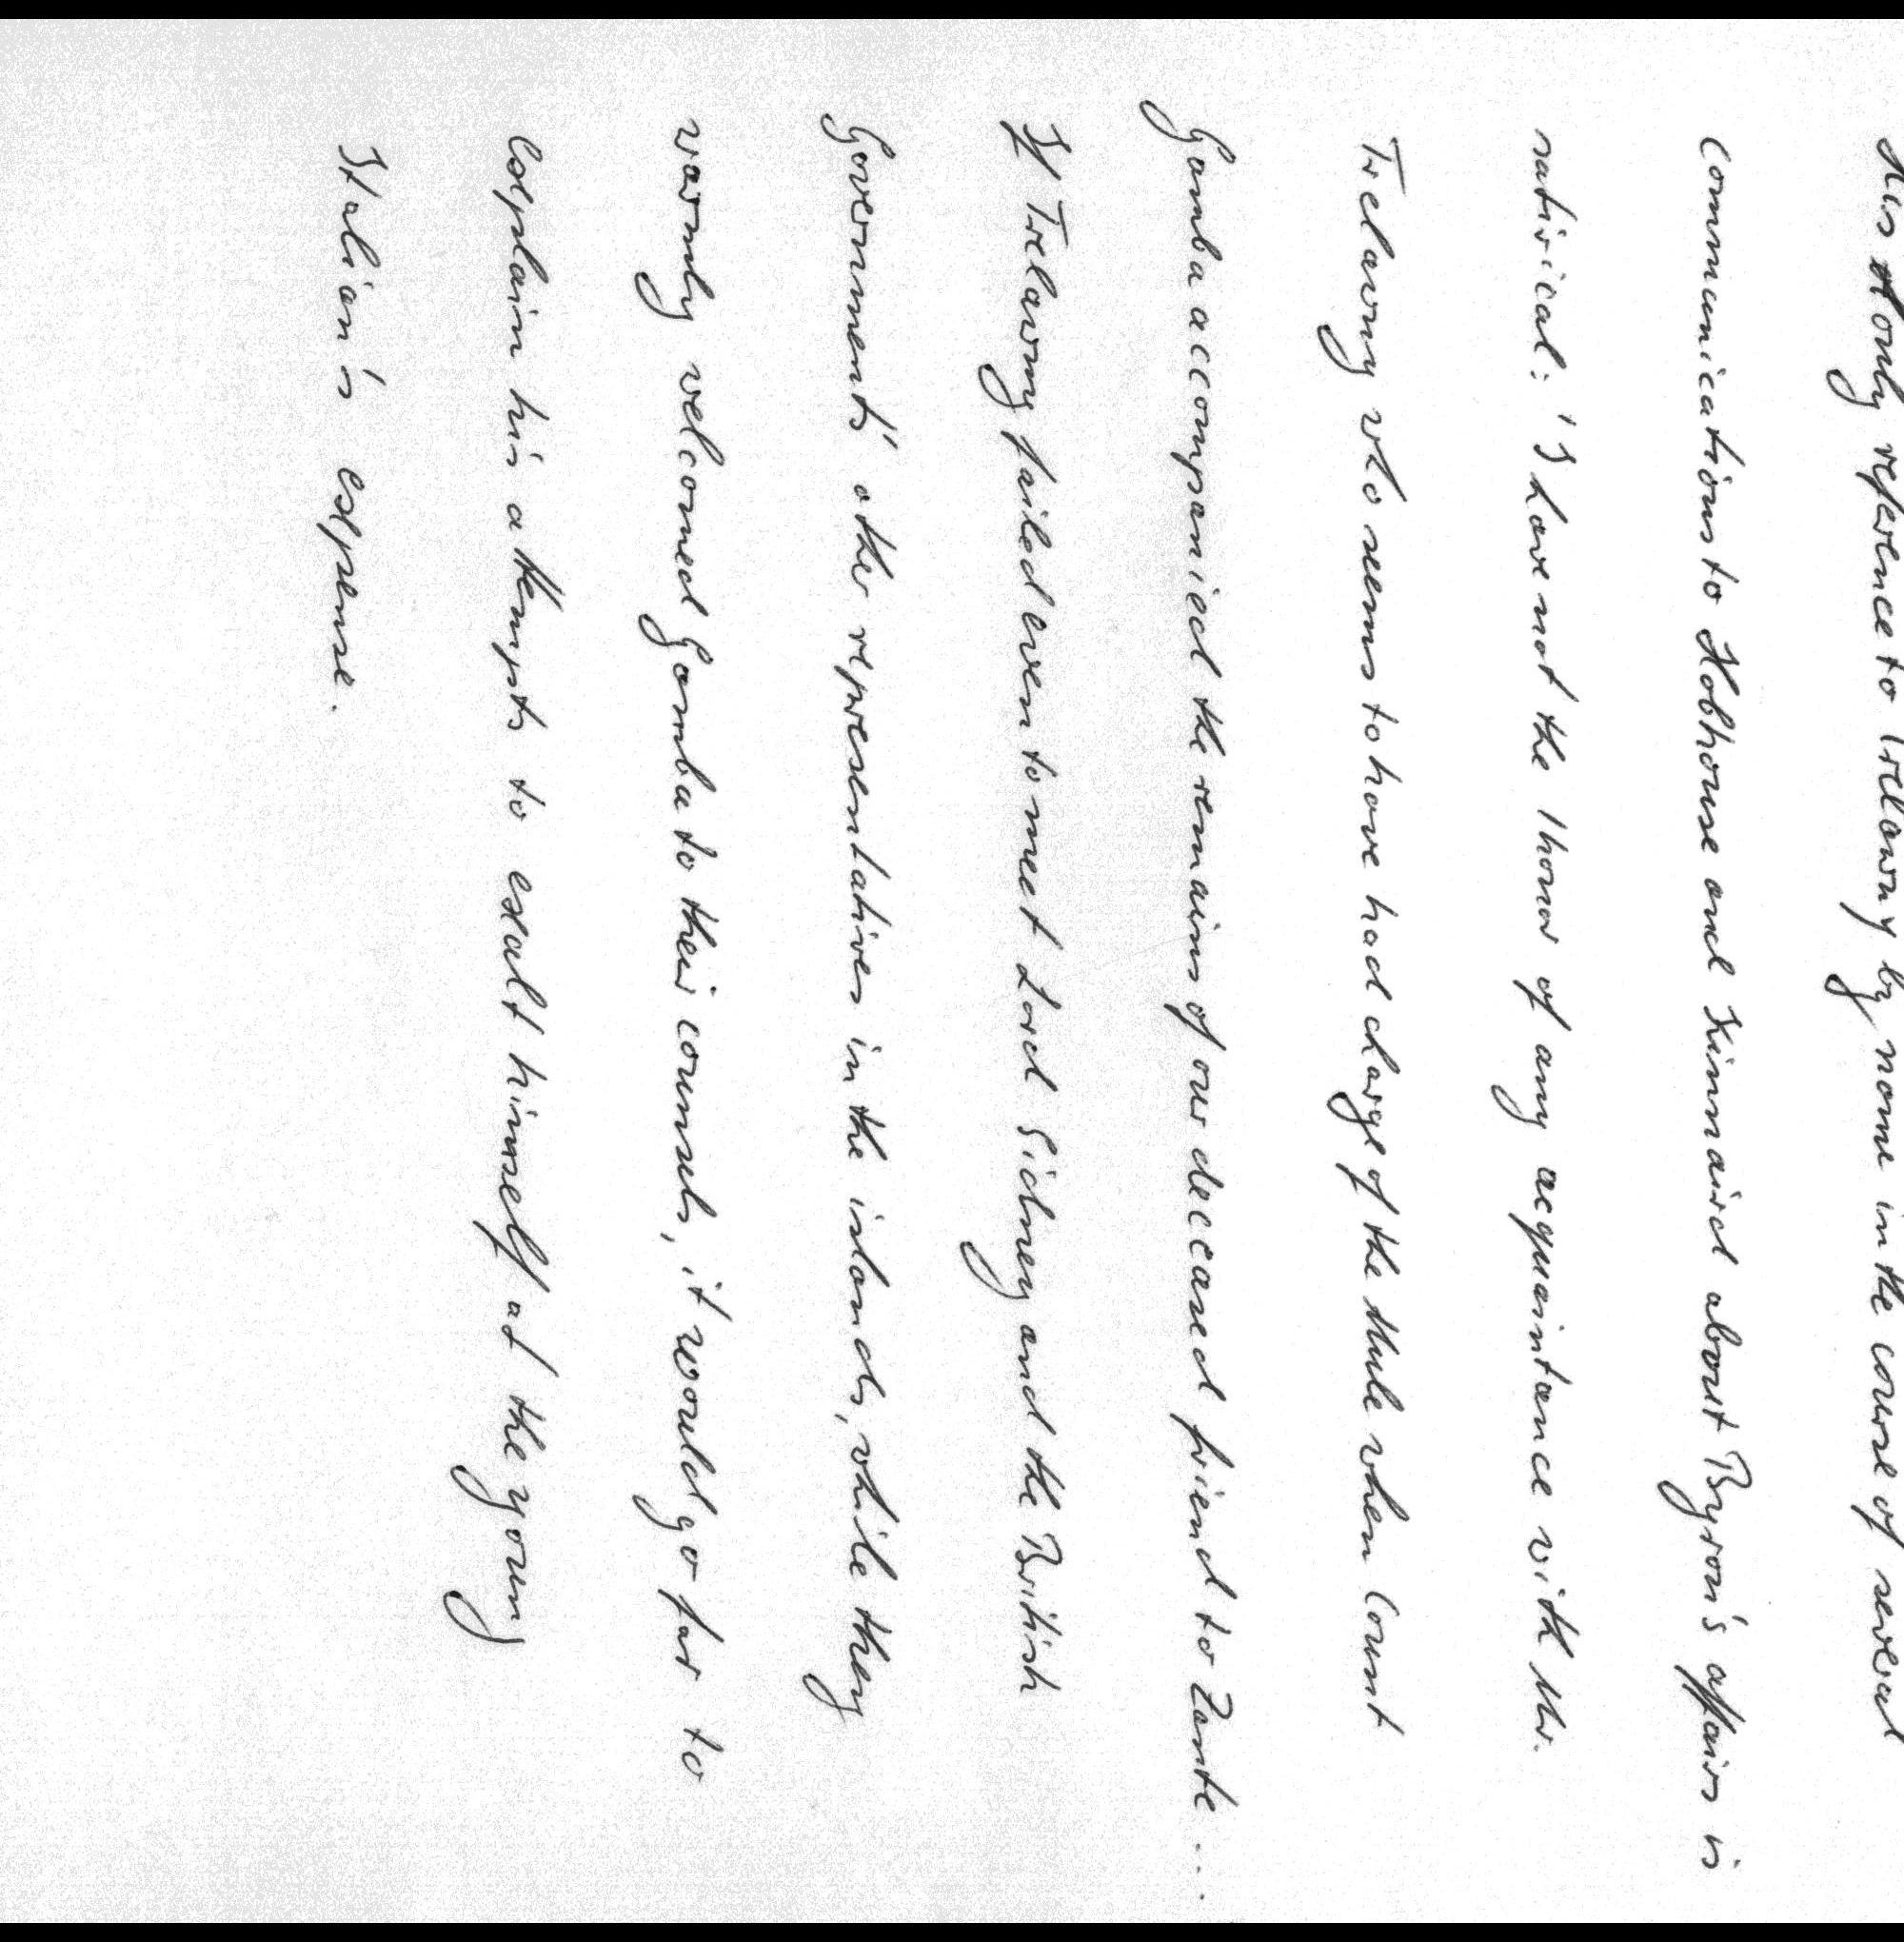 His only reference to Trelawny by name in the course of several
communications to Hobhouse and Kinnaird about Byron's affairs is
satirical: 'I have not the honor of any acquaintance with Mr.
Trelawny who seems to have had charge of the Mule when Count
Gamba accompanied the remains of our deceased friend to Zante...
If Trelawny failed even to meet Lord Sidney and the British
Governments' other representatives in the islands, while they
warmly welcomed Gamba to their counsels, it would go far to
explain his attempts to exalt himself at the young
Italian's expense.